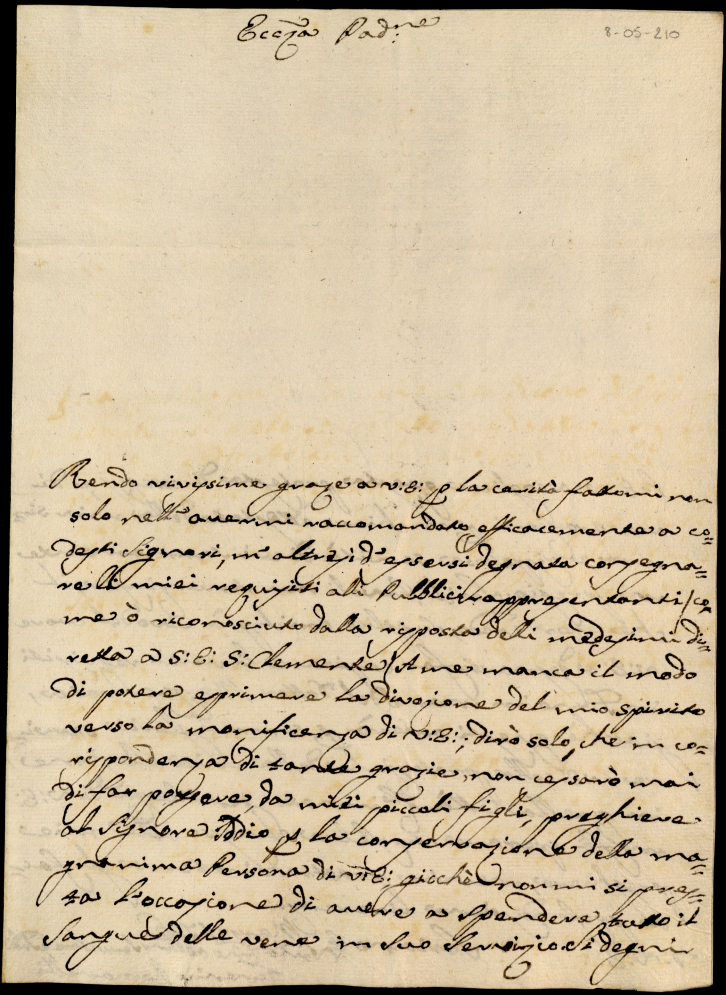 Ecc.za Pad.ne
8-05-210
Rendo vivissime grazie a V:E: p la carità fattami non
solo nell'avermi raccomandato efficacemente a co=
desti Signori, m'altresi d'essersi degnata consegna=
re li miei requisiti alli Pubblici rappresentanti / co=
me ò riconosciuto dalla risposta delli medesimi di=
retta à S: E: S: Clemente / A me manca il modo
di potere esprimere la divozione del mio spirito
verso la monificenza di V:E:; dirò solo, che in co=
rispondenza di tante grazie, non cessarò mai
di far porgere da miei piccoli figli, preghiere
al Signore Iddio p la conservazione della ma=
gnanima Persona di V:E:, giacchè non mi si pres=
ta l'occasione di avere a spendere tutto il
Sangue delle vene in suo Servizio. Si degni